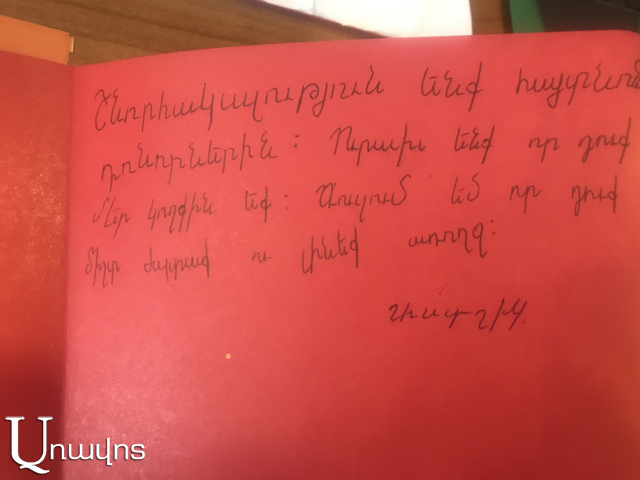 Շնորհակալություն ենք հայտնում
դոնորներին: Ուրախ ենք որ դուք
մեր կողքին եք: Ուզում եմ որ դուք
միշտ ժպտաք ու լինեք առողջ:
Առավոտ